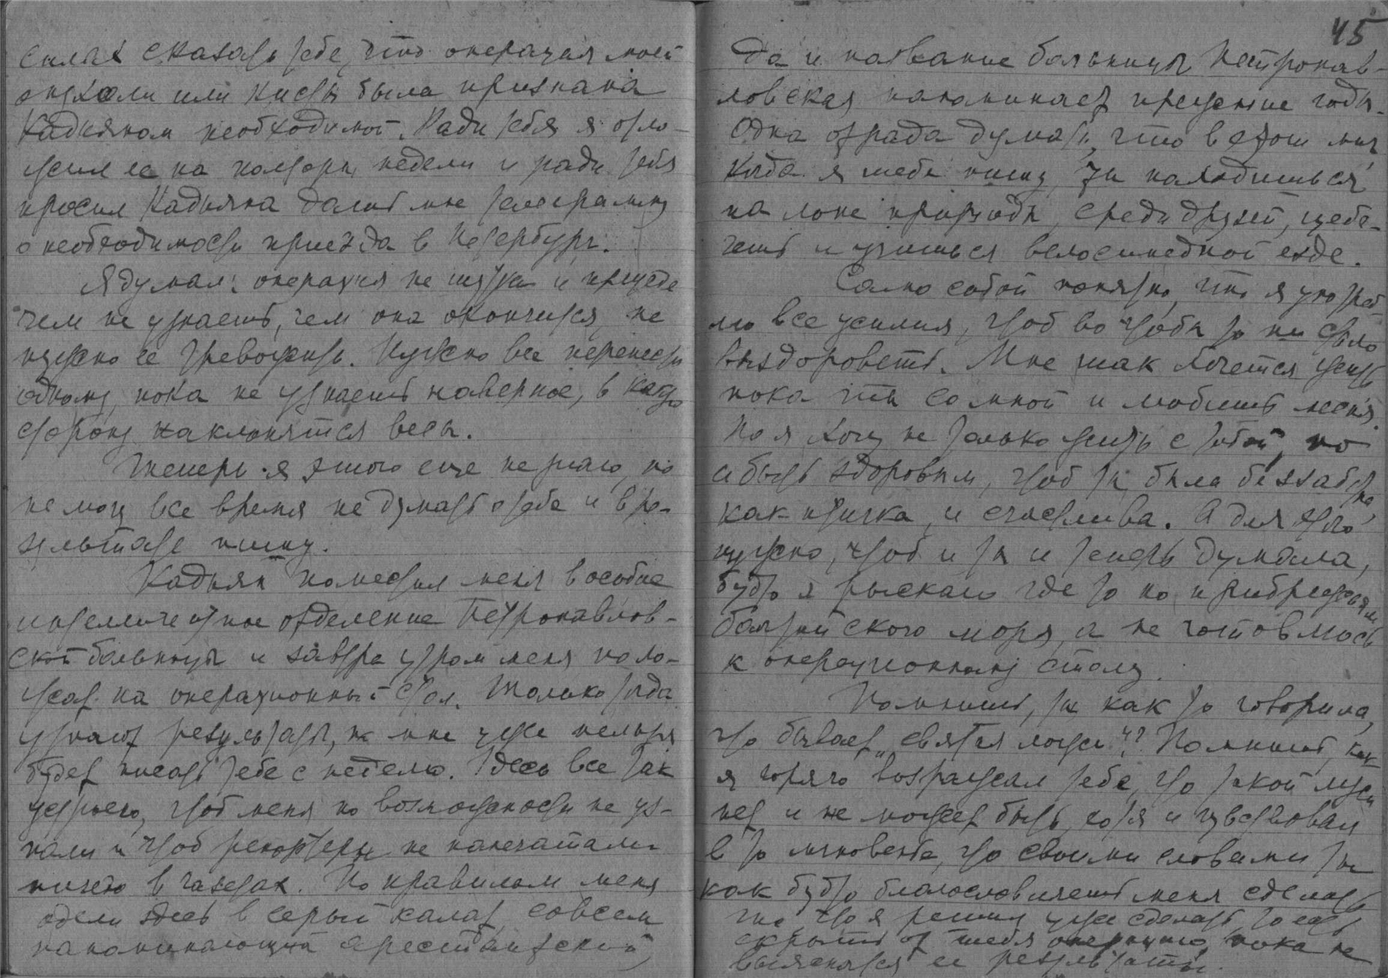 силах сказать тебе, что операция моей
опухоли или кисты была признана
Кадьяном необходимой. Ради тебя я отло-
жил ее на полторы недели и ради тебя
просил Кадьяна дать мне телеграмму
о необходимости приезда в Петербург.
Я думал: операция не шутка и прежде
чем не узнаешь, чем она окончится, не
нужно ее тревожить. Нужно все перенести
одному, пока не узнаешь наверное, в какую
сторону наклонятся весы.
Теперь я этого еще не знаю, но
не могу все время не думать о тебе и в ре-
зультате пишу.
Кадьян поместил меня в особое
отделение Петропавлов-
ской больницы и завтра утром меня поло-
жат на операционный стол. Только тогда
узнают результаты, но мне уже нельзя
будет писать тебе с неделю. Здесь все так
устроено, чтоб меня по возможности не уз-
нали и чтоб репортеры не напечатали
ничего в газетах. По правилам меня
одели здесь в серый халат, совсем
напоминающий арестантский,
45
Да и название больницы Петропав-
ловская напоминает прежние годы.
Одна отрада думать, что в этот миг
когда я тебе пишу, ты находишься
на лоне природы, среди друзей, щебе-
чешь и учишься велосипедной езде.
Само собой понятно, что я употреб-
лю все усилия, чтоб во что бы то ни стало
выздороветь. Мне так хочется жить
пока ты со мной и любишь меня.
Но я хочу не только жить с тобой, но
и быть здоровым, чтоб ты была беззаботна,
как птичка, и счастлива. А для этого
нужно, чтоб и ты и теперь думала,
будто я рыскаю где то по прибрежьям
Балтийского моря, а не готовлюсь
к операционному столу.
Помнишь, ты как то говорила,
что бывает „святая ложь“? Помнишь, как
я горячо возражал тебе, что такой лжи
нет и не может быть, хотя и чувствовал
в то мгновенье, что своими словами ты
как будто благословляешь меня сделать
то что я решил уже сделать, то есть
скрыть от тебя операцию, пока не
выяснятся ее результаты.